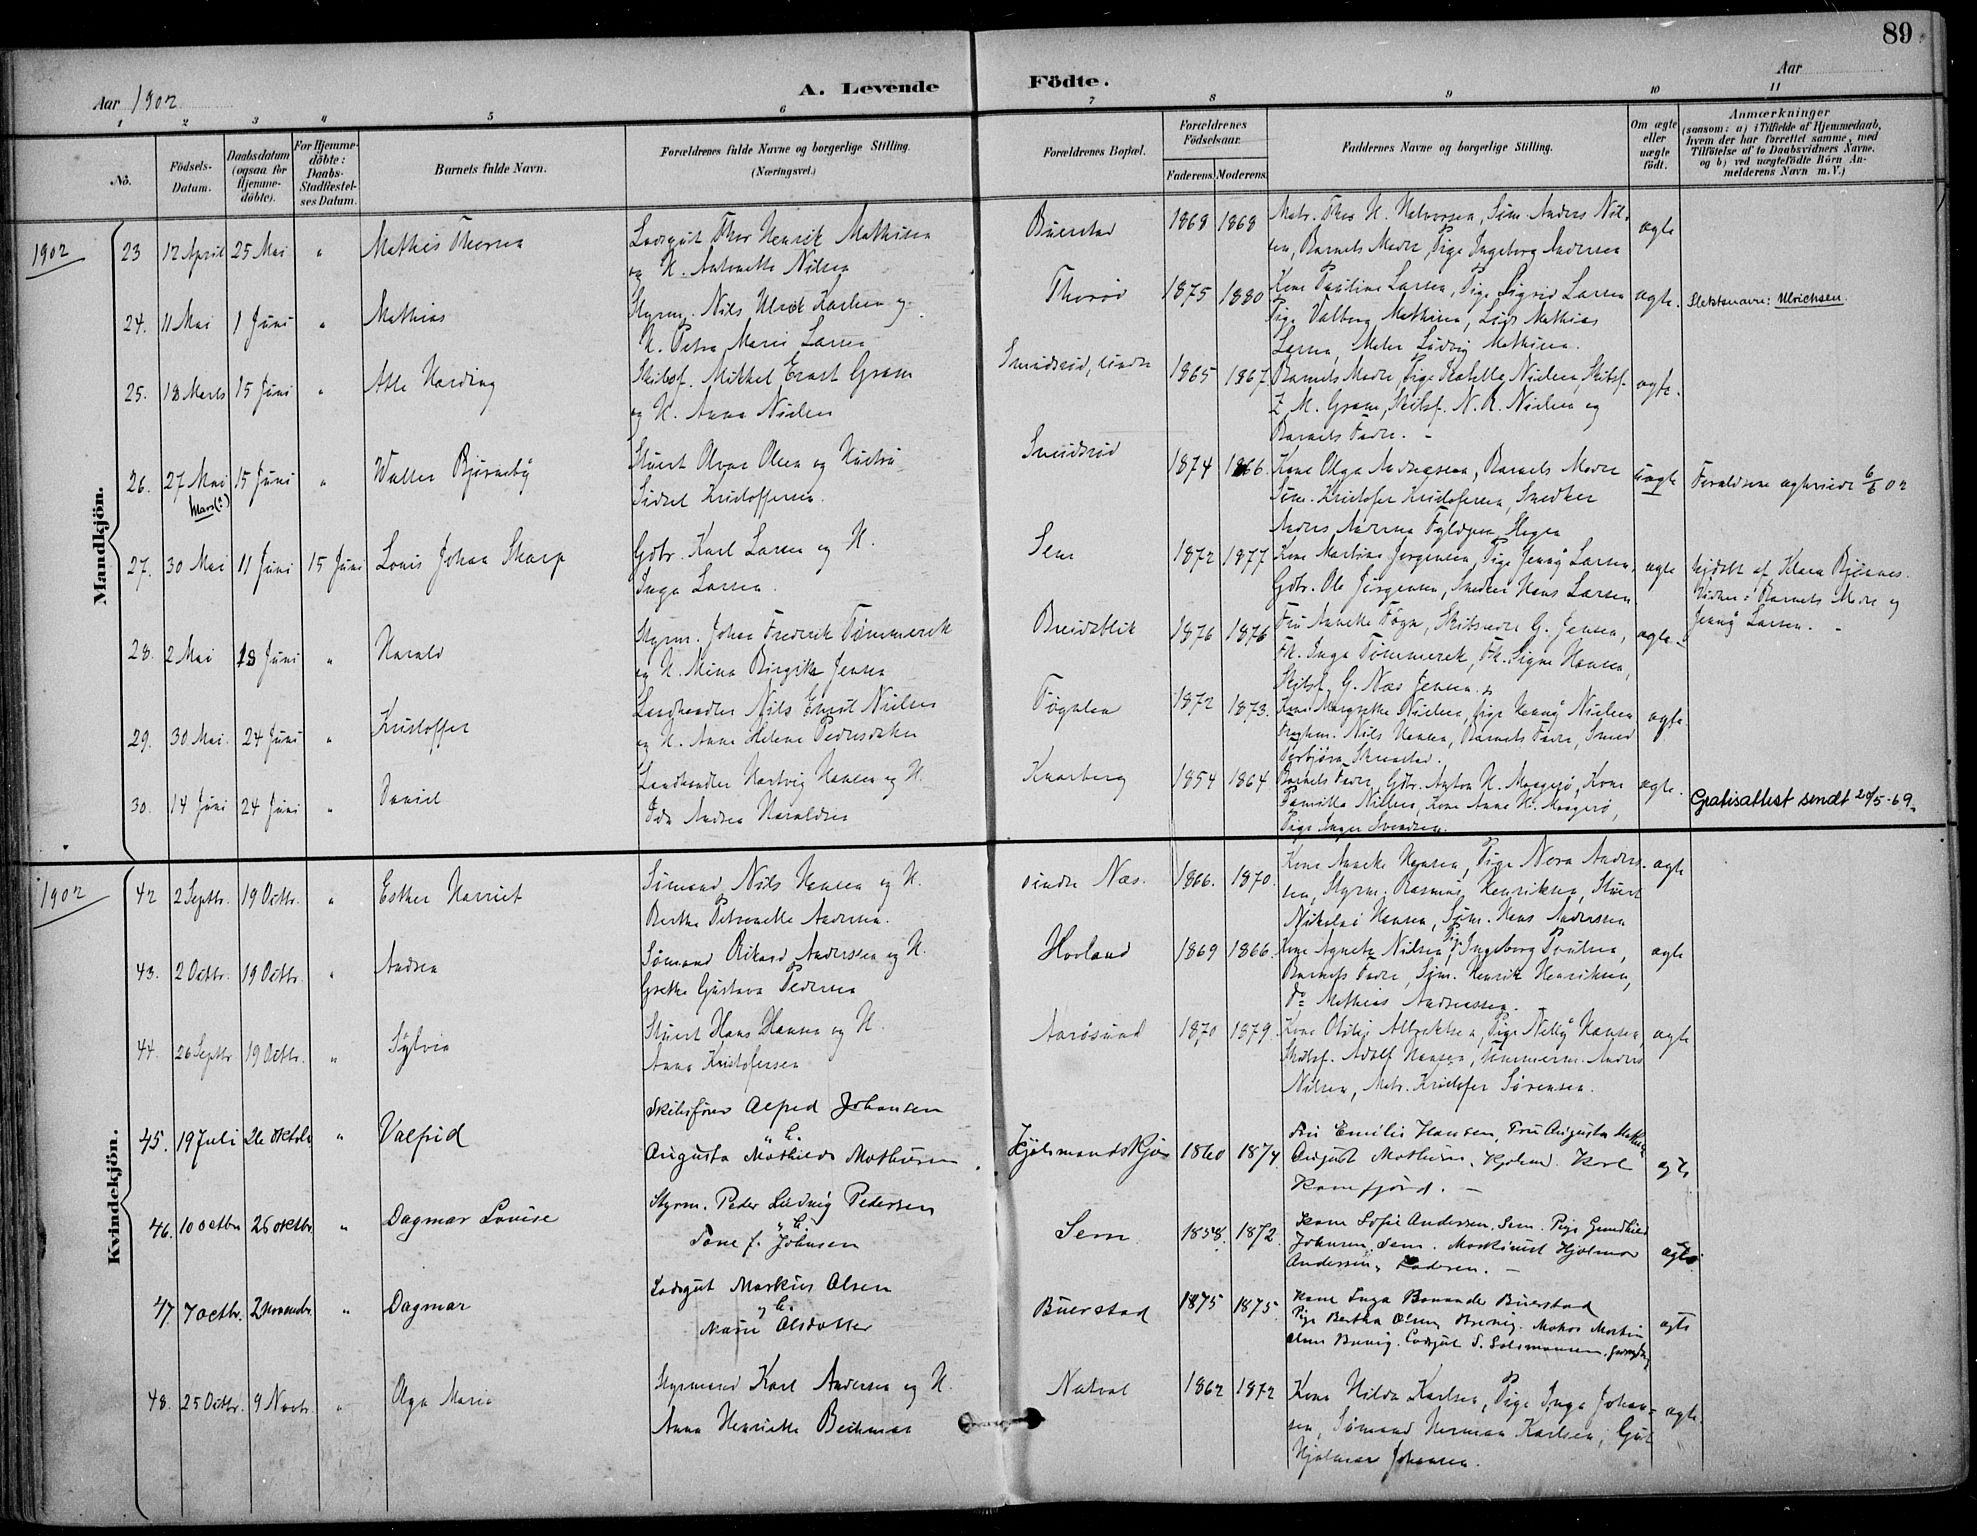 89
Aar 1902
A. Levende Födte.
Aar
1 2 3 4 5 6 7 8 9 10 11
No.
Födsels-Datum.
Daabsdatum (ogsaa for Hjemme-döbte).
For Hjemme-döbte: Daabs-Stadfæstel-ses Datum.
Barnets fulde Navn.
Forældrenes fulde Navne og borgerlige Stilling.
(Næringsvei.)
Forældrenes Bopæl.
Forældrenes Födselsaar.
Faderens. Moderens.
Faddernes Navne og borgerlige Stilling.
Om ægte eller uægte født.
Anmærkninger
(saasom: a) i Tilfælde af Hjemmedaab, hvem der har forrettet samme, med Tilföielse af to Daabsvidners Navne, og b) ved uægtefödte Börn An-melderens Navn m. V.)
Mandkjön.
1902
23 12 April 25 Mai " Mathis Thorsen
Lodsgut Thor Henrik Mathisen
og H. Antonette Nilsen
Buerstad 1868 1868
Matr. Thor H. Halvorsen, Søm. Anders Nil-
sen, Barnets Moder, Pige Ingeborg Andersen
ægte
24. 11 Mai 1 Juni " Mathias
Styrm. Nils Ulrik Karlsen og
H. Petra Marie Larsen
Thorød 1875 1880
Kone Pauline Larsen, Pige Sigrid Larsen
Pige Valborg Mathisen, Lods Mathias
Larsen, Maler Ludvig Mathisen.
ægte. Slektsnavn: Ulrichsen.
25. 18 Marts 15 Juni " Atle Harding
Skibsf. Mikkel Ernst Gram
og H. Anna Nielsen
Smidsrød, Søndre 1865 1867
Barnets Moder, Pige Isabella Nielsen, Skibsf.
Z. M. Gram, Skibsf. N. R. Nielsen og
Barnets Fader. –
ægte.
26. 27 Mai 15 Juni " Walter Bjørneby
Mars(?)
Stuert Olvar Olsen og Hustru
Sidsel Kristoffersen.
Smidsrød 1874 1866
Kone Olga Andreasen, Barnets Moder
Søm. Kristofer Kristofersen, Snedker
uægte Forældrene ægteviede 6/6 02
27. 30 Mai 11 Juni 15 Juni Louis Johan Skarp
Gdbr. Karl Larsen og H.
Inga Larsen.
Sem 1872 1877
Kone Martine Jørgensen, Pige Jenny Larsen,
Gdbr. Ole Jørgensen, Snedker Hans Larsen
ægte
Hjdøbt af Klara Bjønnes.
Vidner: Barnets Moder og
Jenny Larsen. –
28. 2 Mai 18 Juni " Harald
Styrm. Johan Fredrik Tømmerek
og H. Mina Birgitte Jensen
Breidablik 1876 1876
Fru Annette Føgn, Skibsreder G. Jensen,
Frk. Inga Tømmerek, Frk. Signe Hansen,
Skibsf. G. Næs Jensen.
ægte.
29. 30 Mai. 24 Juni " Kristoffer
Landhandler Nils Ernst Nielsen
og H. Anne Helene Pedersdatter
Føynland 1872 1873.
Kone Margrethe Nielsen, Pige Jenny Nielsen
Fragtm. Nils Hansen, Barnets Fader, Smed
Torbjørn
ægte
30. 14 Juni 24 Juni " Daniel
Landhandler Hartvig Hansen og H.
Ida Andrea Haraldsen
Knarberg 1854 1864
Barnets Fader, Gdbr. Anton H. Maagerø, Kone
Pernille Nielsen, Kone Anne H. Maagerø,
Pige Inger Svendsen.
ægte. Gratisattest sendt 20/5-69.
Kvindekjön.
1902
42 2 Septbr. 19 Octbr. " Esther Harriet
Sømand Nils Hansen og H.
Berthe Petronelle Andersen.
Søndre Næs. 1866. 1870.
Kone Annette Hansen, Pige Nora Anders-
sen, Styrm. Rasmus Henriksen, Stuert
Nikolai Hansen, Søm. Hans Anderssen
ægte
43. 2 Octbr. 19 Octbr. " Andrea
Sømand Rikard Anderssen og H.
Grethe Gustava Pedersen
Hovland 1869 1866.
Kone Agnete Nilsen, Pige Ingeborg Poulsen,
Barnets Fader, Søm. Henrik Henriksen,
do Mathias Andreassen.
ægte
44. 26 Septbr. 19 Octbr. " Sylvia
Stuert Hans Hansen og H.
Anna Kristofersen
Aarøsund 1870 1879.
Kone Otilie Albrektsen, Pige Nelly Hansen,
Skibsf. Adolf Hansen, Tømmerm. Anders
Nilsen, Matr. Kristofer Sørensen.
ægte
45. 19 Juli 26 oktobr " Valfrid
Skibsfører Alfred Johansen
o. h.
Augusta Mathilde Mathisen
Hjelmandskjær 1860 1874
Fru Emilie Hansen, Fru Augusta Mathisen
August Mathisen, Karl
Ranefjord. –
ægte
46. 10 octbr 26 oktbr. " Dagmar Louise
Styrm. Peder Ludvig Pedersen
o. h.
Tone f. Johnsen
Sem. 1858. 1872.
Kone Sofie Andersen, Sem. Pige Gundhild
Johnsen, Sem. Maskinist Hjalmar
Andersen, Faderen. –
ægte
47. 7 octbr. 2 Novembr. " Dagmar
Lodsgut Markus Olsen
o. h.
Marie Olsdatter
Buerstad 1875 1875.
Kone Inga Buerstad
Pige Bertha Olsen, Brevig. Matros Martin
Olsen Brevig. Lodsgut S. Salomonsen,
ægte
48. 25 Octbr. 9 Novbr. " Olga Marie
Styrmand Karl Andersen og H.
Anna Henriette Beckman
Natval 1862 1872
Kone Hilda Karlsen, Pige Inga Johan-
sen, Sømand Herman Karlsen, Gut
Hjalmar Johansen.
ægte.